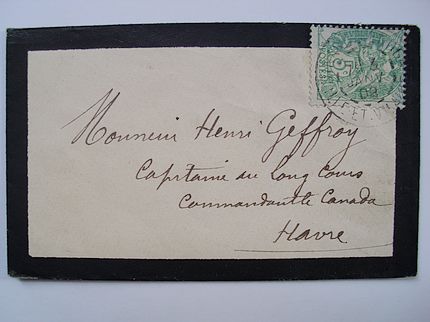 Monsieur Henri Geffroy
Capitaine au Long Cours
Commandant le Canada
Havre
5
09
ET